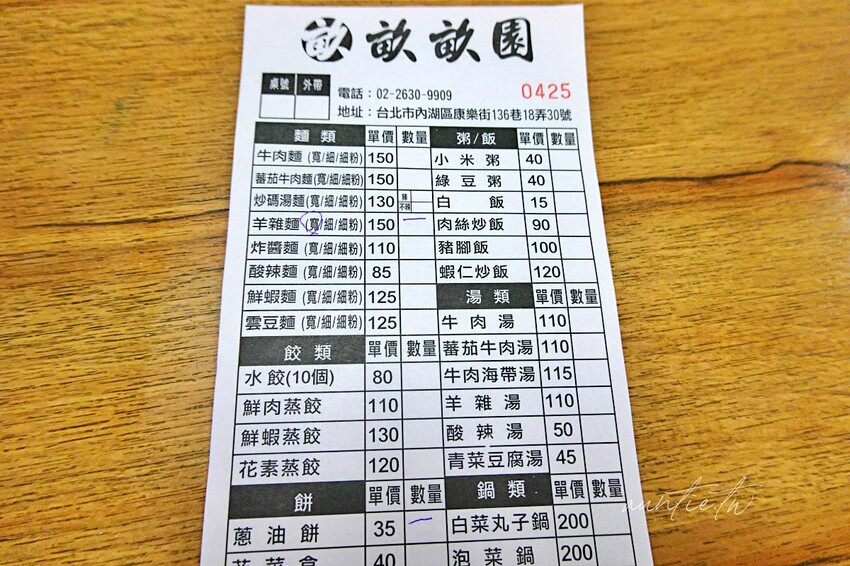 畝 畝畝園
桌號 外帶
電話：02-2630-9909 0425
地址：台北市內湖區康樂街136巷18弄30號
麵類 單價 數量 粥/飯 單價 數量
牛肉麵 (寬/細/細粉) 150 小米粥 40
蕃茄牛肉麵(寬/細/細粉) 150 綠豆粥 40
炒碼湯麵(寬/細/細粉) 130 辣 不辣 白飯 15
羊雜麵 (寬/細/細粉) 150 一 肉絲炒飯 90
炸醬麵 (寬/細/細粉) 110 豬腳飯 100
酸辣麵 (寬/細/細粉) 85 蝦仁炒飯 120
鮮蝦麵 (寬/細/細粉) 125 湯類 單價 數量
雲豆麵 (寬/細/細粉) 125 牛肉湯 110
餃類 單價 數量 蕃茄牛肉湯 110
水餃(10個) 80 牛肉海帶湯 115
鮮肉蒸餃 110 羊雜湯 110
鮮蝦蒸餃 130 酸辣湯 50
花素蒸餃 120 青菜豆腐湯 45
餅 單價 數量 鍋類 單價 數量
蔥油餅 35 一 白菜丸子鍋 200
40 泡菜鍋 200
auntie.tw